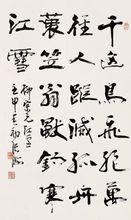 千山鳥飛絕萬
徑人蹤滅孤舟
蓑笠翁獨釣寒
江雪
柳宗元江雪
壬申春初